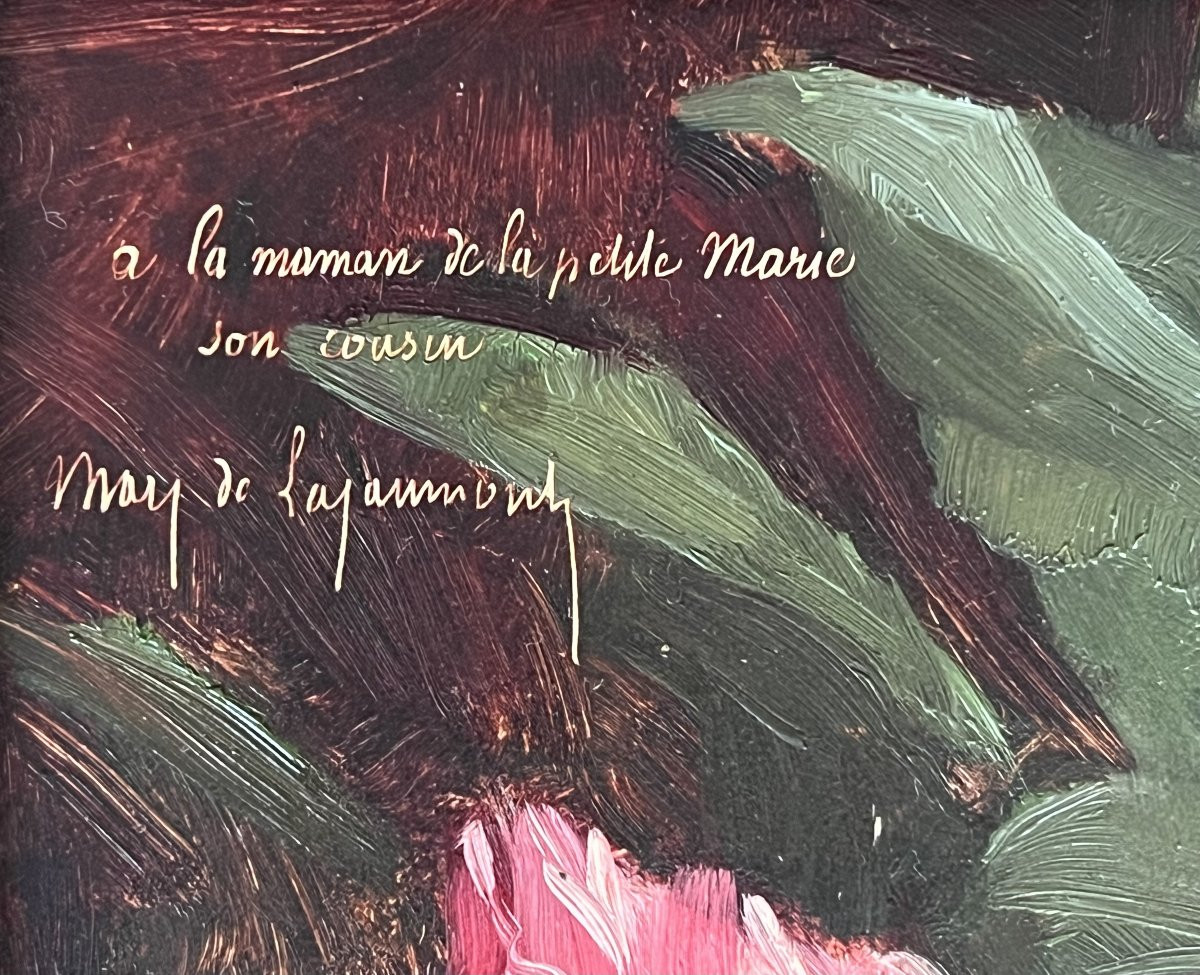 a la maman de la petite Marie
son cousin
Mary de Lajaumont